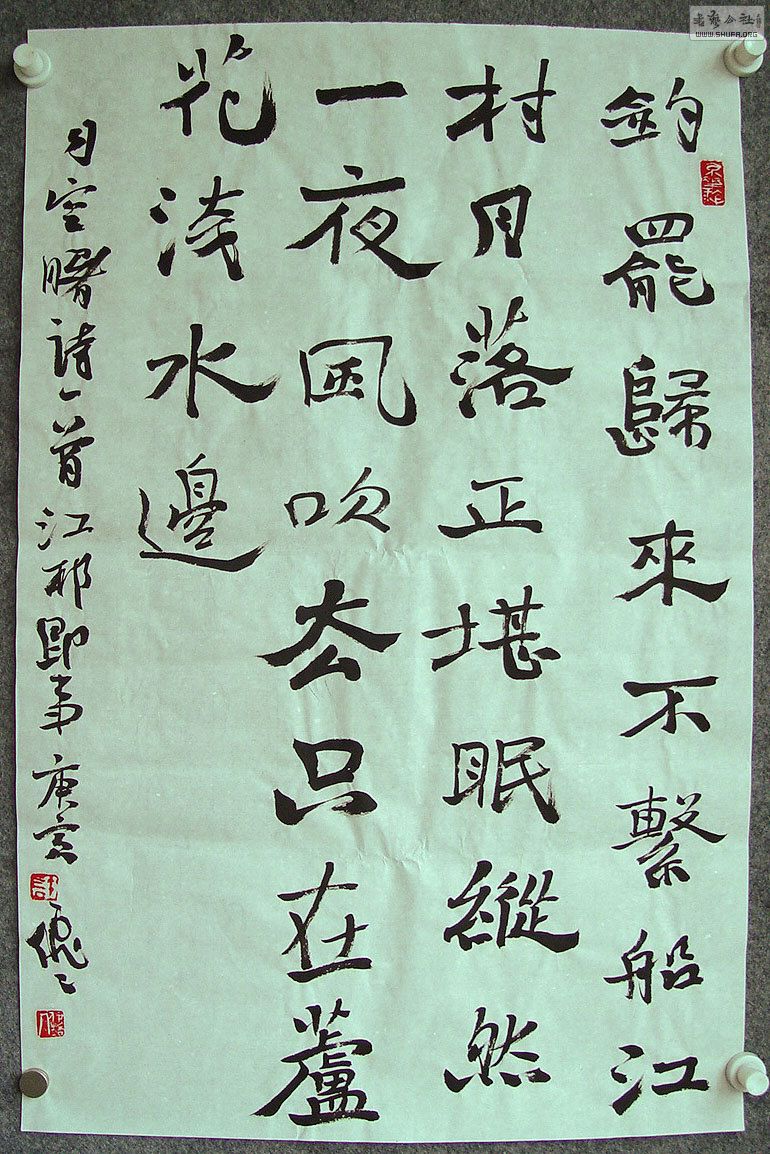 釣罷歸來不繫船江
村月落正堪眠縱然
一夜風吹去只在蘆
花淺水邊
司空曙詩一首江邨即事庚寅
书艺公社
WWW.SHUFA.ORG